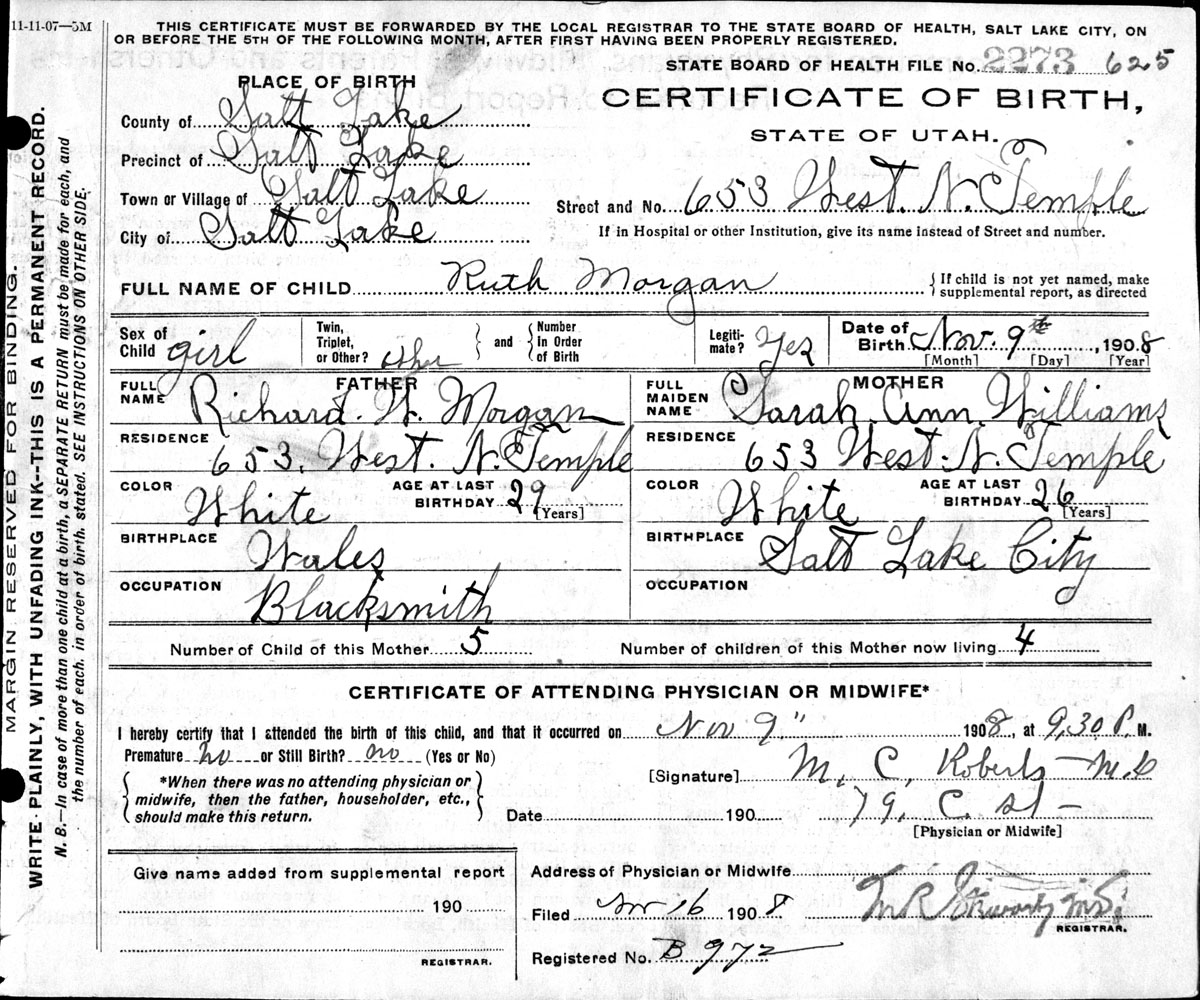 11-11-07—5M
THIS CERTIFICATE MUST BE FORWARDED BY THE LOCAL REGISTRAR TO THE STATE BOARD OF HEALTH, SALT LAKE CITY, ON
OR BEFORE THE 5TH OF THE FOLLOWING MONTH, AFTER FIRST HAVING BEEN PROPERLY REGISTERED.
STATE BOARD OF HEALTH FILE No. 2273 625
PLACE OF BIRTH
CERTIFICATE OF BIRTH,
STATE OF UTAH.
County of Salt Lake
Precinct of Salt Lake
Town or Village of Salt Lake
City of Salt Lake
Street and No. 653 West. N. Temple
If in Hospital or other Institution, give its name instead of Street and number.
FULL NAME OF CHILD Ruth Morgan
{If child is not yet named, make
supplemental report, as directed
Sex of Child girl
Twin, Triplet, or Other? other } and { Number In Order of Birth
Legiti- mate? Yes
Date of Birth Nov. 9th, 1908
[Month] [Day] [Year]
FATHER
FULL NAME Richard. W. Morgan
RESIDENCE 653, West. N. Temple
COLOR White AGE AT LAST BIRTHDAY 29 [Years]
BIRTHPLACE Wales
OCCUPATION Blacksmith
MOTHER
FULL MAIDEN NAME Sarah Ann Williams
RESIDENCE 653 West. N. Temple
COLOR White AGE AT LAST BIRTHDAY 26 [Years]
BIRTHPLACE Salt Lake City
OCCUPATION
Number of Child of this Mother 5 Number of children of this Mother now living 4
CERTIFICATE OF ATTENDING PHYSICIAN OR MIDWIFE*
I hereby certify that I attended the birth of this child, and that it occurred on Nov 9" 1908, at 9,30 P. M.
Premature no or Still Birth? no (Yes or No)
*When there was no attending physician or
midwife, then the father, householder, etc.,
should make this return.
[Signature] M, C, Roberts M.D
Date 190 79, C. St -
[Physician or Midwife]
Give name added from supplemental report
190
REGISTRAR.
Address of Physician or Midwife
Filed Nov 16 1908
REGISTRAR.
Registered No. B 972
MARGIN RESERVED FOR BINDING.
WRITE PLAINLY, WITH UNFADING INK--THIS IS A PERMANENT RECORD.
N. B.—In case of more than one child at a birth, a SEPARATE RETURN must be made for each, and
the number of each, in order of birth, stated. SEE INSTRUCTIONS ON OTHER SIDE.